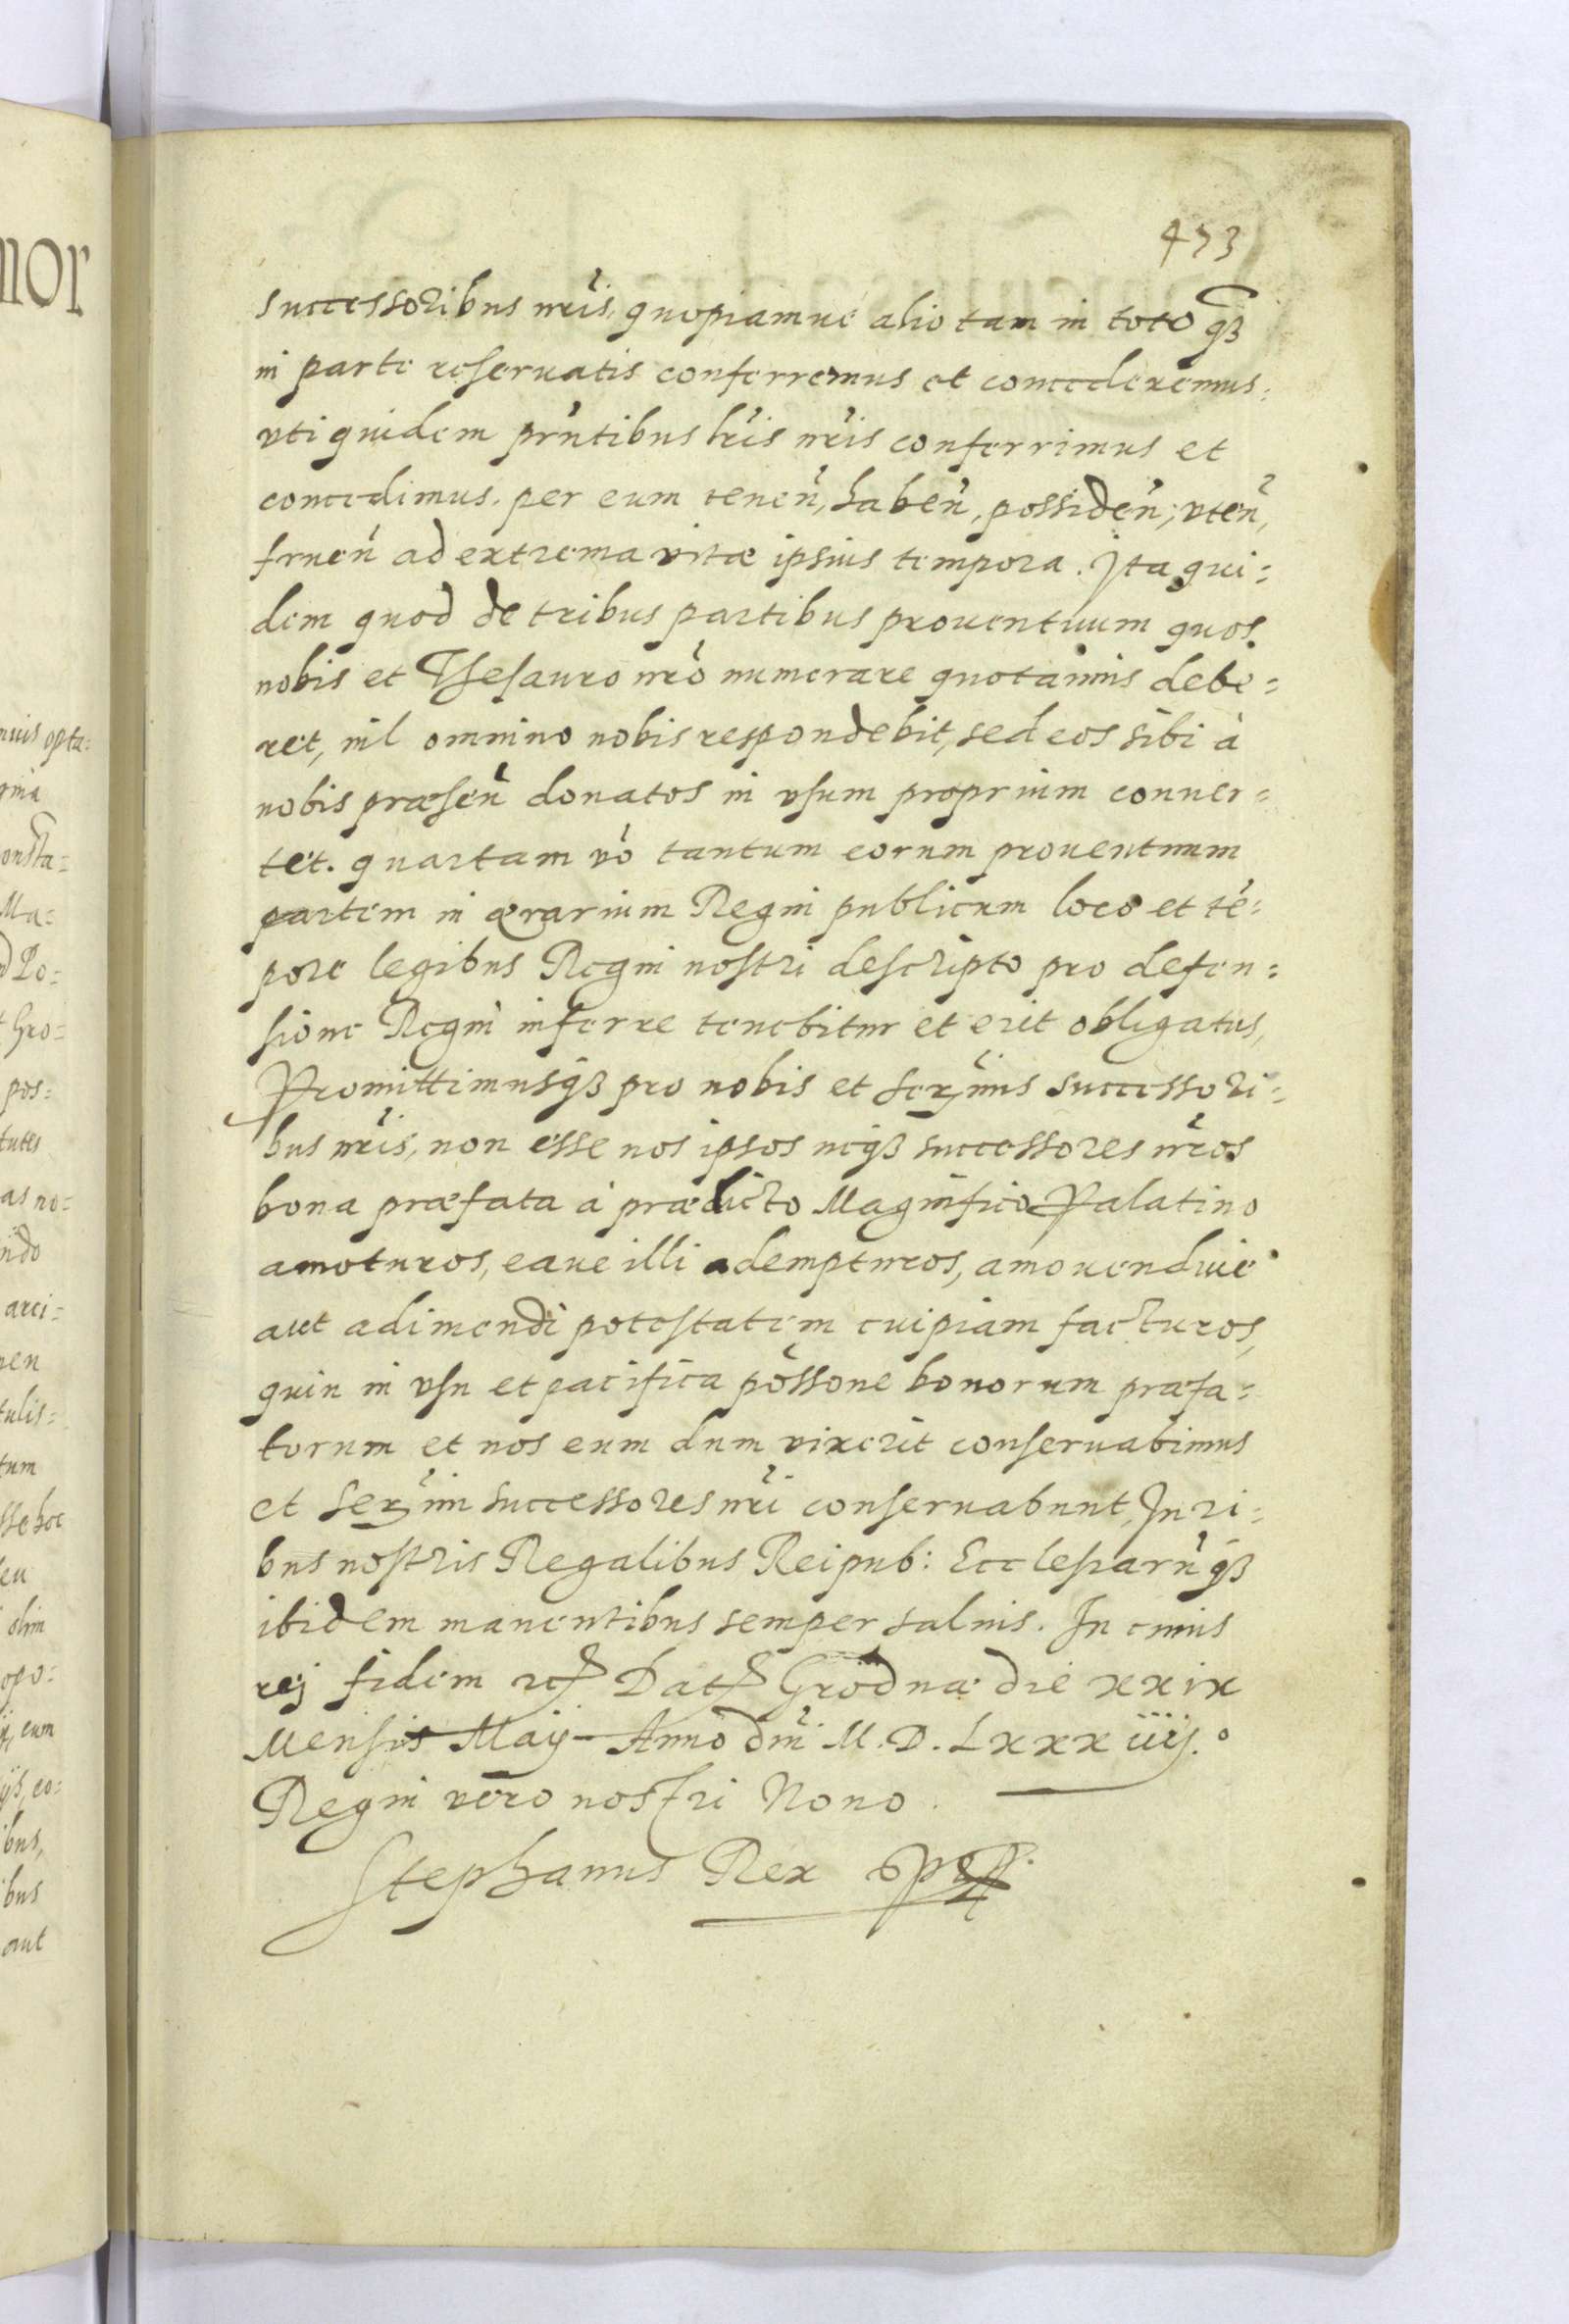 473
successoribus nr̃is, quopiamue alio tam in toto q̃ꝫ
in parte reseruatis conferremus et concederemus,
vti quidem pr̃ntibus lr̃is nr̃is conferrimus et
concedimus. per eum tenen̄, haben̄, possiden̄, vten̄,
fruen̄ ad extrema vitæ ipsius tempora. Ita qui=
dem quod de tribus partibus prouentuum quos
nobis et Thesauro nr̃o numerare quotannis debe=
ret, nil omnino nobis respondebit, sed eos sibi à
nobis præsen̄ donatos in vsum proprium conuer=
tet. quartam vò tantum eorum prouentuum
partem in ærarium Regni publicum loco et tē=
pore legibus Regni nostri descripto pro defen=
sione Regni inferre tenebitur et erit obligatus,
Promittimusqꝫ pro nobis et serm̃is successori=
bus nr̃is, non esse nos ipsos neqꝫ successores nr̃os
bona præfata à prædicto Magnifico Palatino
amoturos, eaue illi adempturos, amouendiue
aut adimendi potestatem cuipiam facturos,
quin in vsu et pacifica pōssone bonorum præfa=
torum et nos eum dum vixerit conseruabimus
et serm̃i successores nr̃i conseruabunt, Juri=
bus nostris Regalibus Reipub: Ecclesiarūqꝫ
ibidem manentibus semper saluis. In cuius
rej fidem ꝛc Dat Grodnæ die xxix
Mensis Maij Anno dn̄i M. D. Lxxxiiij.º
Regni vero nostri Nono.
Stephanus Rex
nor